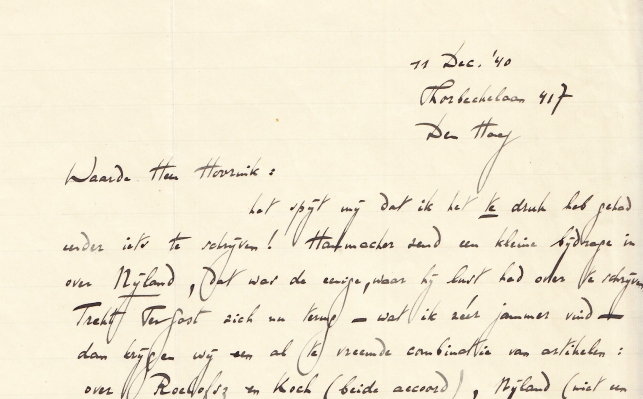 11 Dec. '40
Thorbeckelaan 417
Den Haag
Waarde Heer Hoornik :
het spijt mij dat ik het te druk heb gehad
eerder iets te schrijven! Hammacher zend een kleine bijdrage in
over Nijland, dat was de eenige, waar hij lust had over te schrijven
Trekt Tergast zich nu terug – wat ik zéér jammer vind –
dan krijgen wij een al te vreemde combinatie van artikelen :
over Roelofsz en Koch (beide accoord), Nijland (niet een